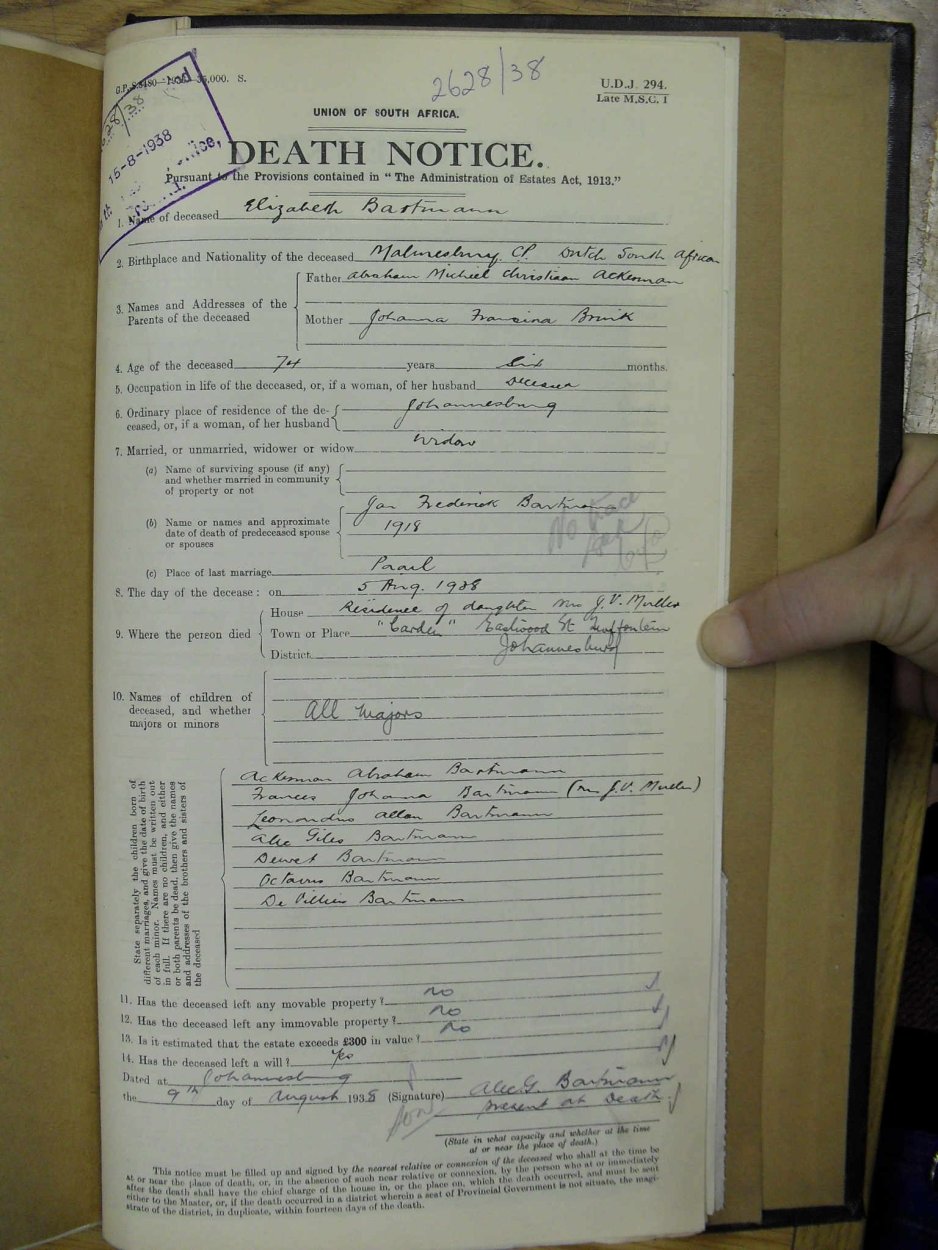 G.P. S.8480—1935—35,000. S.
2628/38
U.D.J. 294.
Late M.S.C. 1
15-8-1938
UNION OF SOUTH AFRICA.
DEATH NOTICE.
Pursuant to the Provisions contained in "The Administration of Estates Act, 1913."
1. Name of deceased Elizabeth Bartmann
2. Birthplace and Nationality of the deceased Malmesbury, CP. Dutch South African
3. Names and Addresses of the Parents of the deceased
Father Abraham Michiel Christiaan Ackerman
Mother Johanna Francina Bruik
4. Age of the deceased 74 years Six months.
5. Occupation in life of the deceased, or, if a woman, of her husband Deceased
6. Ordinary place of residence of the deceased, or, if a woman, of her husband Johannesburg
7. Married, or unmarried, widower or widow Widow
(a) Name of surviving spouse (if any) and whether married in community of property or not
(b) Name or names and approximate date of death of predeceased spouse or spouses
Jan Frederick Bartmann
1918
No trace
(c) Place of last marriage Paarl
8. The day of the decease: on 5 Aug. 1938
9. Where the person died
House Residence of daughter Mrs J.V. Muller
Town or Place "Carden" Eastwood St Turffontein
District Johannesburg
10. Names of children of deceased, and whether majors or minors
All Majors
State separately the children born of different marriages, and give the date of birth of each minor. Names must be written out in full. If there are no children, and either or both parents be dead, then give the names and addresses of the brothers and sisters of the deceased
Ackerman Abraham Bartmann
Frances Johanna Bartmann (Mrs J.V. Muller)
Leonardus Allan Bartmann
Alec Giles Bartmann
Dewet Bartmann
Octavus Bartmann
De Villiers Bartmann
11. Has the deceased left any movable property? no
12. Has the deceased left any immovable property? no
13. Is it estimated that the estate exceeds £300 in value? no
14. Has the deceased left a will? Yes
Dated at Johannesburg
the 9th day of August 1938 (Signature) Alec G. Bartmann
present at Death
(State in what capacity and whether at the time
at or near the place of death.)
This notice must be filled up and signed by the nearest relative or connexion of the deceased who shall at the time be
at or near the place of death, or, in the absence of such near relative or connexion, by the person who at or immediately
after the death shall have the chief charge of the house in, or the place on, which the death occurred, and must be sent
either to the Master, or, if the death occurred in a district wherein a seat of Provincial Government is not situate, the magi-
strate of the district, in duplicate, within fourteen days of the death.